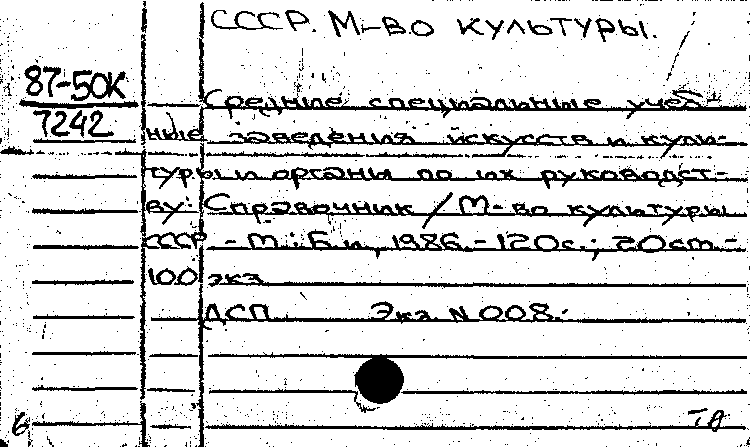 СССР. М-во культуры.
87-50К
7242
Средние специальные учеб-
ные заведения искусств и куль-
туры и органы по их руководст-
ву: Справочник / М-во культуры
СССР. - М.: Б.и., 1986. - 120с.; 20см. -
100 экз.
ДСП Экз. N 008.